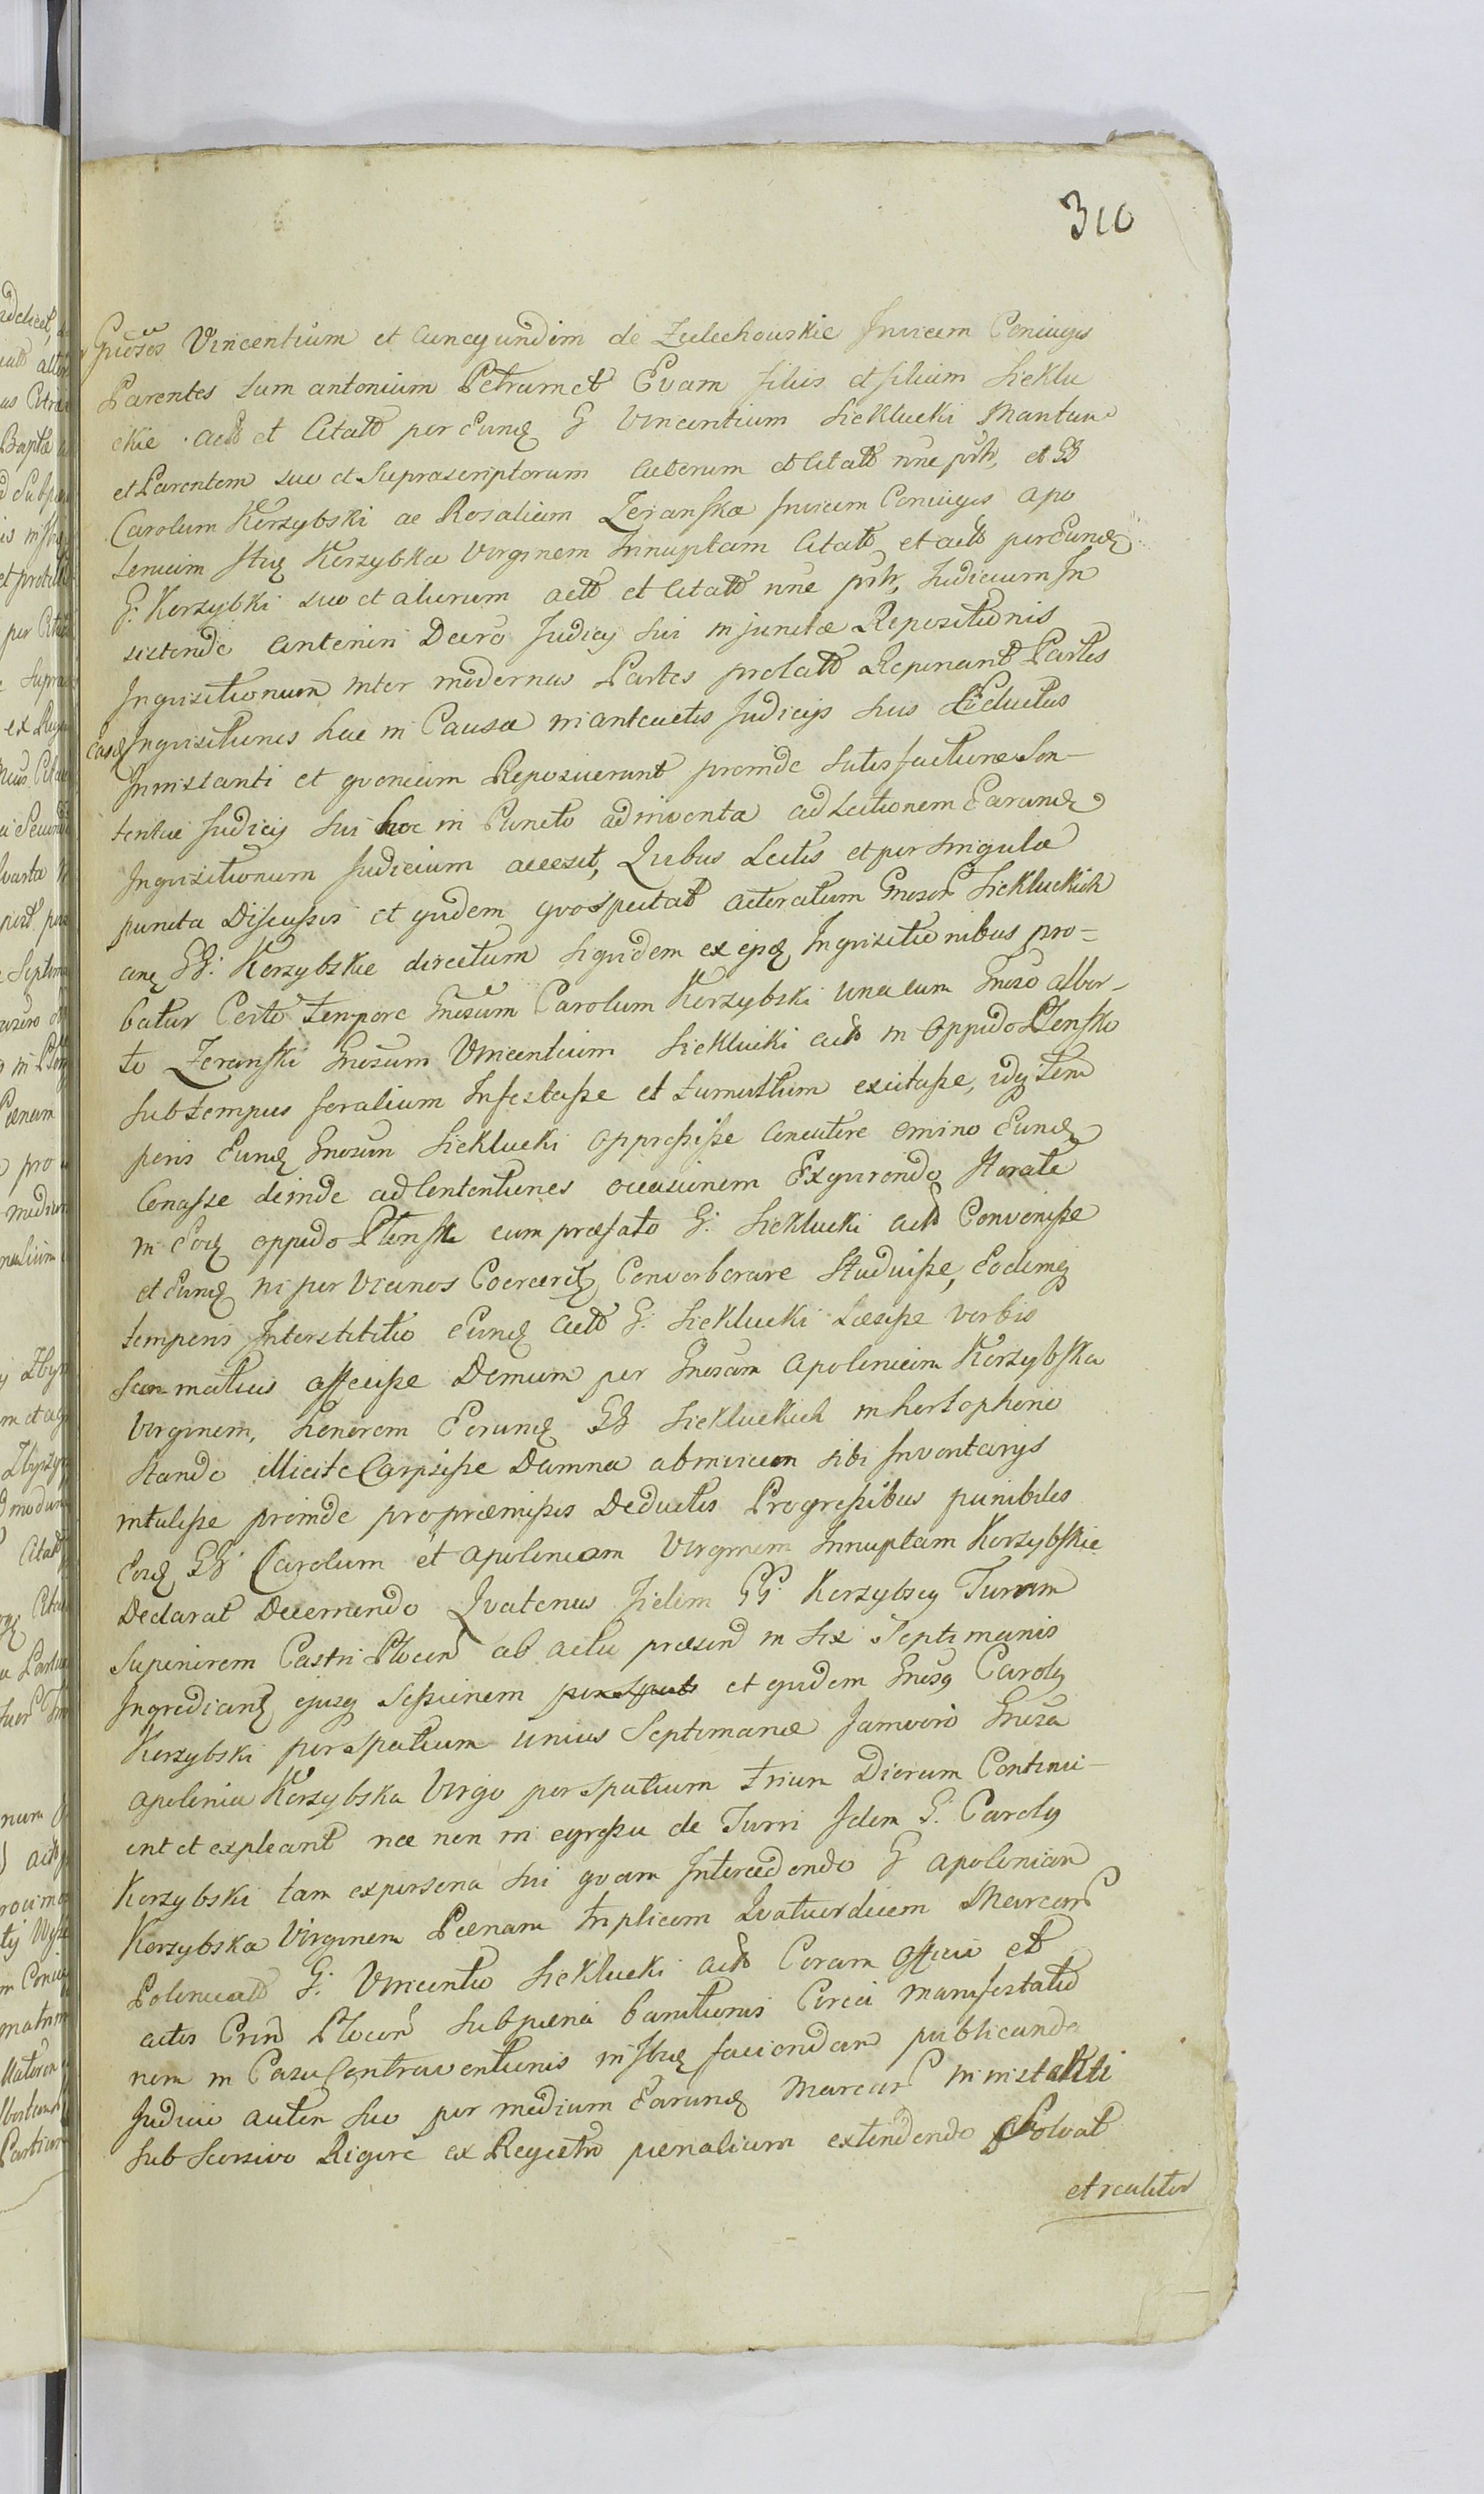 310
Gnosos Vincentium et Cunegundim de Zulechowskie Invicem Coniuges
Parentes tum antonium Petrum et Evam filios et filiam Sieklu
ckie actt et Citatt per Eund G Vincentium Sieklucki Maritum
et Parentem suo et Suprascriptorum aliorum et Citatt nne prtr, et GG
Carolum Korzybski ac Rosaliam Zeranska Invicem Coniuges apo
loniam Korzybska Virginem Innuptam Citatt et actt per Eund
G. Korzybski suo et aliorum actt et Citatt nne prtr, Judicium In
sistendo anteriori Decro Judicij sui injunctæ Repositionis
Inquisitionum inter modernas Partes prolatt Reponant Partes
easd Inquisitiones hac in Causa in anteactis Judicijs suis Eductas
In instanti et quoniam Reposuerunt proinde satisfactione Sen-
tentiæ Judicij sui hoc in Puncto adinventa ad Lectionem Earund
Inquisitionum Judicium accessit, Quibus Lectis et per singula
puncta Discussis et quidem quo Spectat actoratum Gnosor Sieklucki
anq GG. Korzybskie directum siquidem ex ipsq Inquisitionibus pro=
batur Certo tempore Gnosum Carolum Korzybski una cum Gnoso alber-
to Zeranski Gnosum Vincentium Sieklucki actt in oppido Plonsko
sub tempus foralium Infestasse et tumultum excitasse, idq tem
poris Eund Gnosum Sieklucki oppressisse concutere omnino Eund
Conasse deinde ad Contentiones occasionem Exquirendo Iterate
in Eod oppido Plonsk cum præfato G. Sieklucki actt Convenisse
et Eund ni per Vicinos Coerceretq Converberare Studuisse, Eodemq
temporis Interstitio Eund actt G. Sieklucki Læsisse verbis
Scommaticis affecisse Demum per Gnosam Apoloniam Korzybska
Virginem, honorem Eorund GG Siekluckich in hortopherio
Stando illicite Carpsisse Damna ab invicem sibi Inventarijs
intulisse proinde pro præmissis Deductis Progressibus punibiles
Eosd GG Carolum et apoloniam Virginem Innuptam Korzybskie
Declarat Decernendo Quatenus Iidem GG. Korzybscy Turrim
Superiorem Castri Plocen ab actu præsend in sex Septimanis
Ingrediantq ejusq Sessionem et quidem Gnosq Carolq
Korzybski per Spatium unius Septimanæ Jam vero Gnosa
apolonia Korzybska Virgo per Spatium trium Dierum Continu-
ent et expleant nec non in egressu de Turri Idem G. Carolq
Korzybski tam ex persona sui quam Intercedendo G apoloniam
Korzybska Virginem Pœnam triplicem Quatuordecim Marcar
Polonicalt G. Vincentio Sieklucki actt Coram officio et
actis Crin Plocen Sub pœna banitionis Circa manifestatio
nem in Casu Contraventionis faciendam publicanda
Judicio autem suo per medium Earund Marcar in instanti
sub Scorsivo Rigore ex Regestro pœnalium extendendo Solvat
et realiter